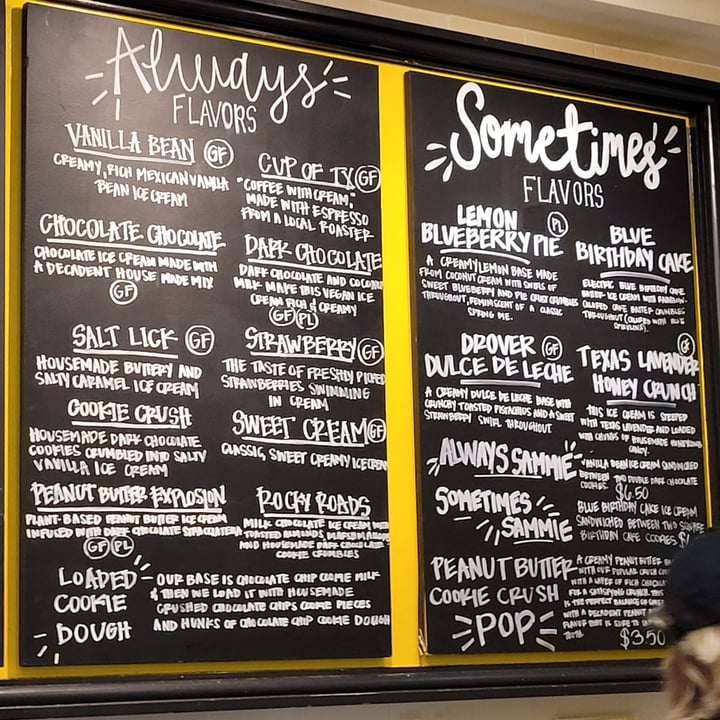 Always
FLAVORS
VANILLA BEAN GF
CREAMY, RICH MEXICAN VANILLA
BEAN ICE CREAM
CHOCOLATE CHOCOLATE
CHOCOLATE ICE CREAM MADE WITH
A DECADENT HOUSE MADE MIX
GF
SALT LICK GF
HOUSEMADE BUTTERY AND
SALTY CARAMEL ICE CREAM
COOKIE CRUSH
HOUSEMADE DARK CHOCOLATE
COOKIES CRUMBLED INTO SALTY
VANILLA ICE CREAM
PEANUT BUTTER EXPLOSION
PLANT-BASED PEANUT BUTTER ICE CREAM
INFUSED WITH DARK CHOCOLATE STRACCIATELLA
GF PL
CUP OF TX GF
"COFFEE WITH CREAM,"
MADE WITH ESPRESSO
FROM A LOCAL ROASTER
DARK CHOCOLATE
DARK CHOCOLATE AND COCONUT
MILK MAKE THIS VEGAN ICE
CREAM RICH & CREAMY
GF PL
STRAWBERRY GF
THE TASTE OF FRESHLY PICKED
STRAWBERRIES SWIMMING
IN CREAM
SWEET CREAM GF
CLASSIC, SWEET CREAMY ICE CREAM
ROCKY ROADS
MILK CHOCOLATE ICE CREAM WITH
TOASTED ALMONDS, MARSHMALLOWS
AND HOUSEMADE DARK CHOCOLATE
COOKIE CRUMBLES
LOADED
COOKIE
DOUGH
OUR BASE IS CHOCOLATE CHIP COOKIE MILK
& THEN WE LOAD IT WITH HOUSEMADE
CRUSHED CHOCOLATE CHIPS COOKIE PIECES
AND HUNKS OF CHOCOLATE CHIP COOKIE DOUGH
Sometimes
FLAVORS
LEMON PL
BLUEBERRY PIE
A CREAMY LEMON BASE MADE
FROM COCONUT CREAM WITH SWIRLS OF
SWEET BLUEBERRY AND PIE CRUST CRUMBLES
THROUGHOUT, REMINISCENT OF A CLASSIC
SPRING PIE.
DROVER GF
DULCE DE LECHE
A CREAMY DULCE DE LECHE BASE WITH
CRUNCHY TOASTED PISTACHIOS AND A SWEET
STRAWBERRY SWIRL THROUGHOUT
BLUE
BIRTHDAY CAKE
ELECTRIC BLUE BIRTHDAY CAKE
BATTER ICE CREAM WITH RAINBOW
COLORED CAKE BATTER CRUMBLES
THROUGHOUT (COLORED WITH BLUE
SPIRULINA).
GF
TEXAS LAVENDER
HONEY CRUNCH
THIS ICE CREAM IS STEEPED
WITH TEXAS LAVENDER AND LOADED
WITH CHUNKS OF HOUSEMADE HONEYCOMB
CANDY.
ALWAYS SAMMIE
VANILLA BEAN ICE CREAM SANDWICHED
BETWEEN TWO DOUBLE DARK CHOCOLATE
COOKIES. $6.50
SOMETIMES
SAMMIE
BLUE BIRTHDAY CAKE ICE CREAM
SANDWICHED BETWEEN TWO SQUARE
BIRTHDAY CAKE COOKIES.
PEANUT BUTTER
COOKIE CRUSH
POP
A CREAMY PEANUT BUTTER
WITH OUR POPULAR CRUSH
WITH A LAYER OF RICH
FOR A SATISFYING CRUNCH. THIS
IS THE PERFECT BALANCE OF
WITH A DECADENT PEANUT
FLAVOR THAT IS SURE TO
$3.50